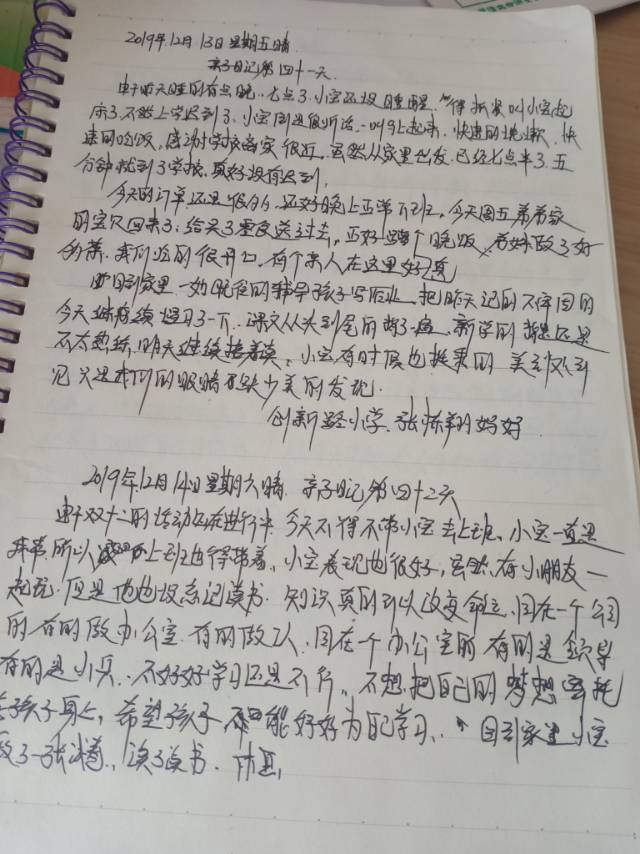 2019年12月13日星期五晴
亲子日记第四十一天
由于昨天睡的有点晚,七点了,小宝还没睡醒,得抓紧叫小宝起
床了,不然上学迟到了,小宝同是很听话,一叫就起来,快速的洗漱,快
速的吃饭,感谢学校离家很近,虽然从家里出发已经七点半了,五
分钟就到了学校,真好没有迟到,
今天的订单还是很多,还好晚上正常下班,今天周五弟弟家
的宝贝回来了,给买了零食送过去,正好蹭个晚饭,弟妹做了好
多菜,我们吃的很开心,有个亲人在这里好
回到家里一如既往的辅导孩子写作业,把昨天记的不牢固的
今天继续复习了一下,课文从头到尾的 了一遍,新学的 还是
不太熟练,明天继续接着读,小宝有时候也挺乘的,美到处
见只是我们的眼睛缺少美的发现.
创新路小学 张 翔妈妈
2019年12月14日星期六晴 亲子日记第四十二天
由于双十二的活动还在进行中,今天不得不带小宝去上班,小宝一直是
我带,所以 上班也得带着,小宝表现也很好,虽然有小朋友一
起玩,但是他也没忘记读书.知识真的可以改变命运,同在一个公司
的有的做办公室,有的做工人,同在一个办公室的有的是领导
有的是小兵,不好好学习还是不行,不想把自己的梦想寄托
在孩子身上,希望孩子能好好为自己学习,回到家里小宝
做了一张 ,读了读书.休息,